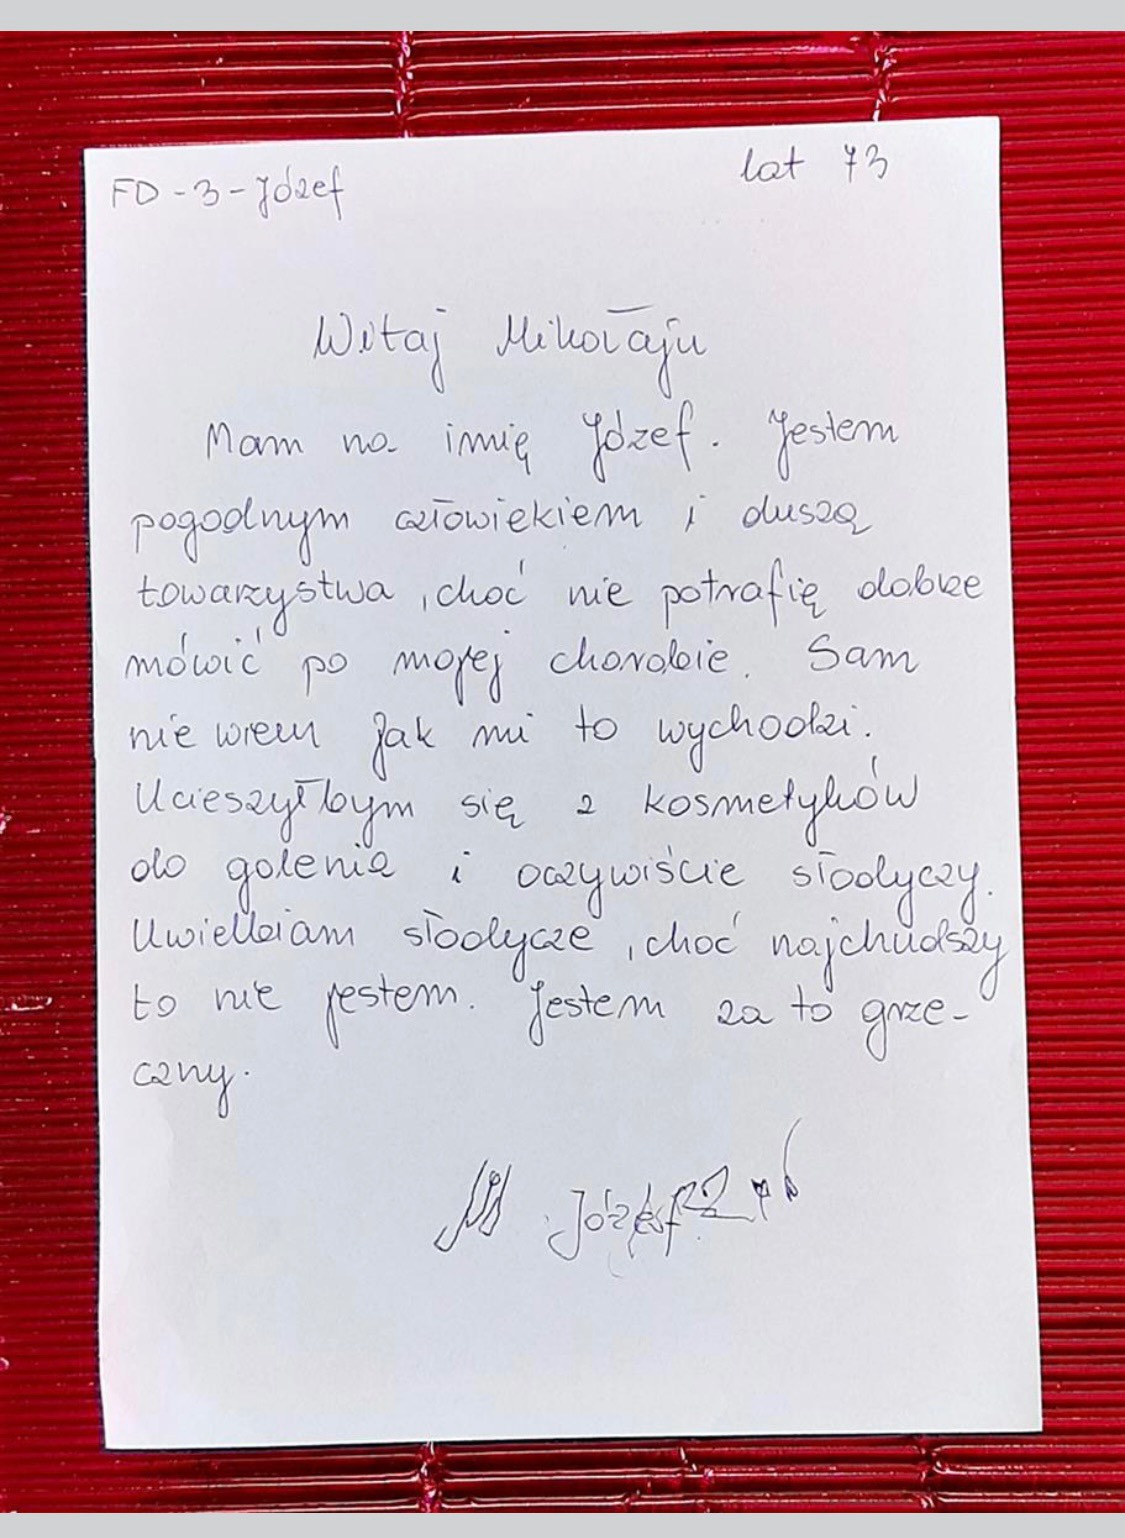 FD-3-Józef
lat 73
Witaj Mikołaju
Mam na imię Józef. Jestem
pogodnym człowiekiem i duszą
towarzystwa, choć nie potrafię dobrze
mówić po mojej chorobie. Sam
nie wiem jak mi to wychodzi.
Ucieszyłbym się z kosmetyków
do golenia i oczywiście słodyczy.
Uwielbiam słodycze, choć najchudszy
to nie jestem. Jestem za to grze-
czny.
Józef